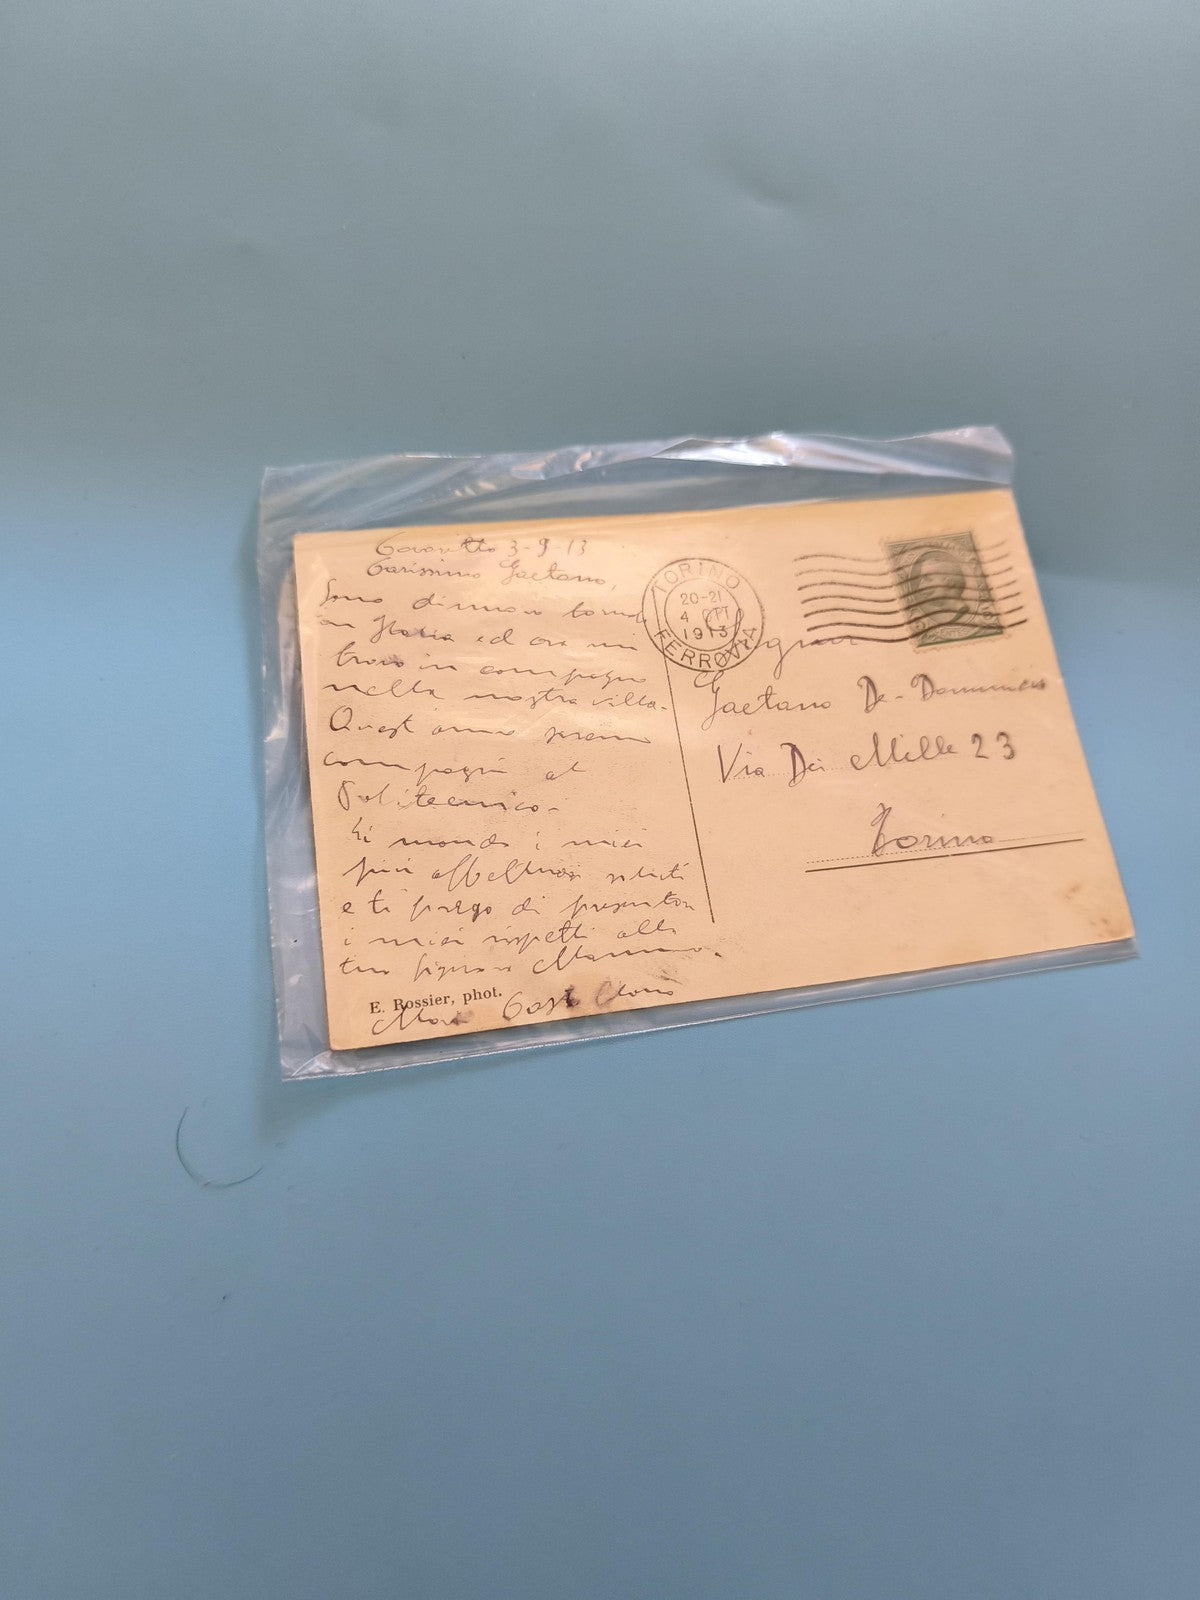 Cavoretto 3-9-13
Carissimo Gaetano,
Sono di nuovo torna
in Italia ed ora mi
trovo in campagna
nella nostra villa.
Quest'anno saremo
compagni al
Politecnico.
Ti mando i miei
più affettuosi saluti
e ti prego di presentare
i miei rispetti alla
tua signora Mamma.
E. Rossier, phot.
TORINO
20-21
4
1913
FERROVIA
Signor
Gaetano De-Dominicis
Via Dei Mille 23
Torino